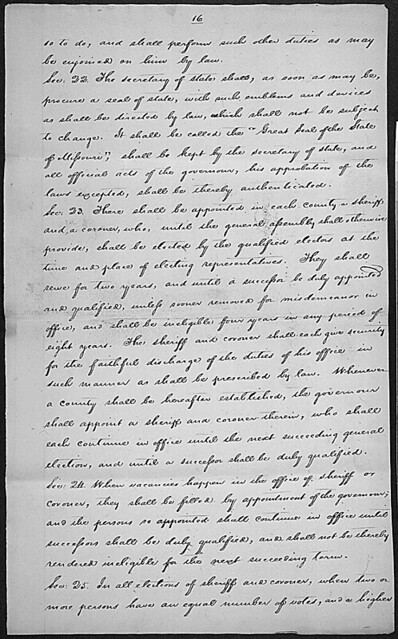 16
so to do, and shall perform such other duties as may
be enjoined on him by law.
Sec: 22. The secretary of state shall, as soon as may be,
procure a seal of state, with such emblems and devices
as shall be directed by law, which shall not be subject
to change. It shall be called the "Great Seal of the State
of Missouri"; shall be kept by the secretary of state, and
all official acts of the governour, his approbation of the
laws excepted, shall be thereby authenticated.
Sec: 23. There shall be appointed in each county a sheriff
and a coroner, who, until the general assembly shall otherwise
provide, shall be elected by the qualified electors at the
time and place of electing representatives. They shall
serve for two years, and until a successor be duly appointed
and qualified, unless sooner removed for misdemeanor in
office, and shall be ineligible four years in any period of
eight years. The sheriff and coroner shall each give security
for the faithful discharge of the duties of his office in
such manner as shall be prescribed by law. Whenever
a county shall be hereafter established, the governour
shall appoint a sheriff and coroner therein, who shall
each continue in office until the next succeeding general
election, and until a successor shall be duly qualified.
Sec: 24. When vacancies happen in the office of sheriff or
coroner, they shall be filled by appointment of the governour;
and the persons so appointed shall continue in office until
successors shall be duly qualified, and shall not be thereby
rendered ineligible for the next succeeding term.
Sec: 25. In all elections of sheriff and coroner, when two or
more persons have an equal number of votes, and a higher